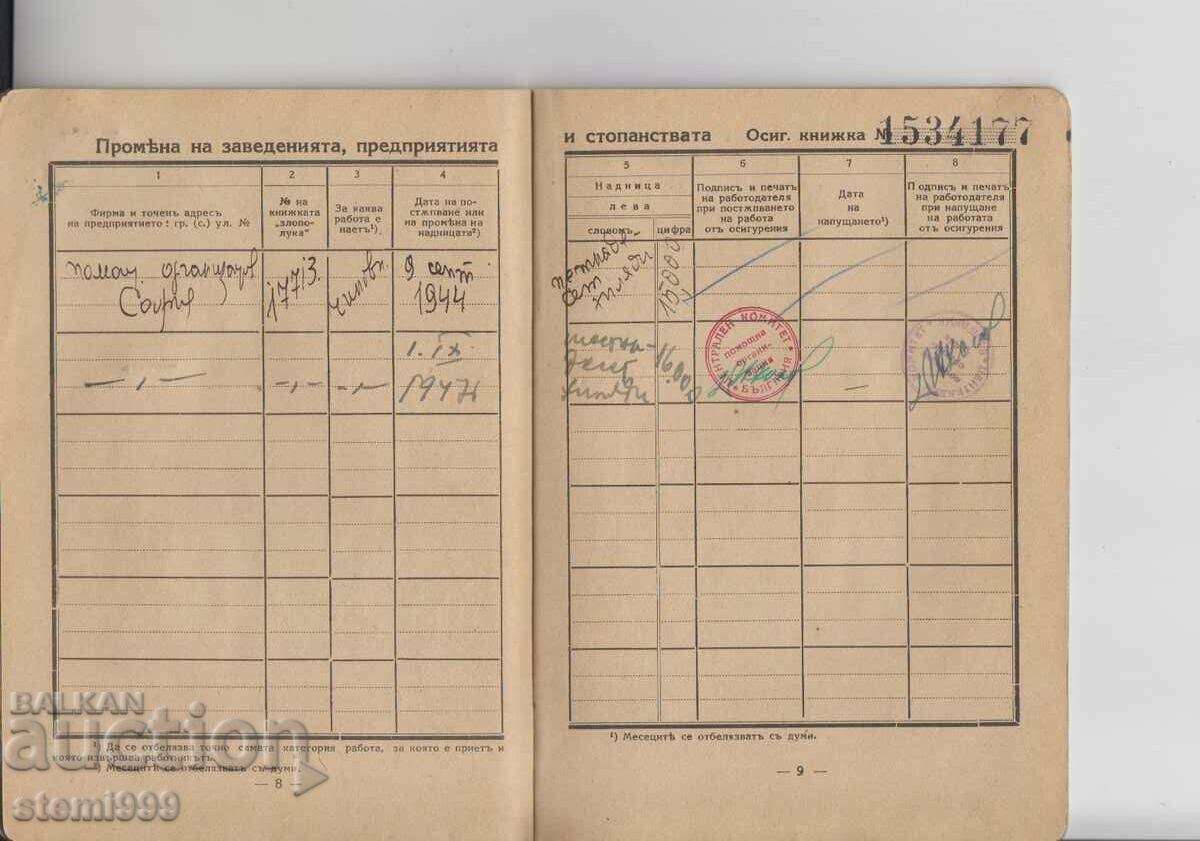 Промѣна на заведенията, предприятията
1 2 3 4
Фирма и точенъ адресъ
на предприятието: гр. (с.) ул. №
№ на
книжката
„злопо-
лука“
За каква
работа е
наетъ¹)
Дата на по-
стѫпване или
на промѣна на
надницата²)
помощ. организация
София
17713.
чиновн.
9 септ.
1944
1. IX.
1947
— „ — — „ — — „ —
¹) Да се отбелязва точно самата категория работа, за която е приетъ и
която извършва работникътъ.
²) Месецитѣ се отбелязватъ съ думи.
— 8 —
и стопанствата Осиг. книжка № 1534177
5 6 7 8
Надница
лева
словомъ цифра
Подпись и печатъ
на работодателя
при постѫпването
на работа
отъ осигурения
Дата
на
напущането¹)
Подпись и печатъ
на работодателя
при напущане
на работата
отъ осигурения
петнаде-
сет
хиляди
15000
шестна-
десет
хиляди
16.000
ЦЕНТРАЛЕН КОМИТЕТ • БЪЛГАРИЯ •
помощна
органи-
зация
—
¹) Месецитѣ се отбелязватъ съ думи.
— 9 —
BALKAN
auction
stemi999